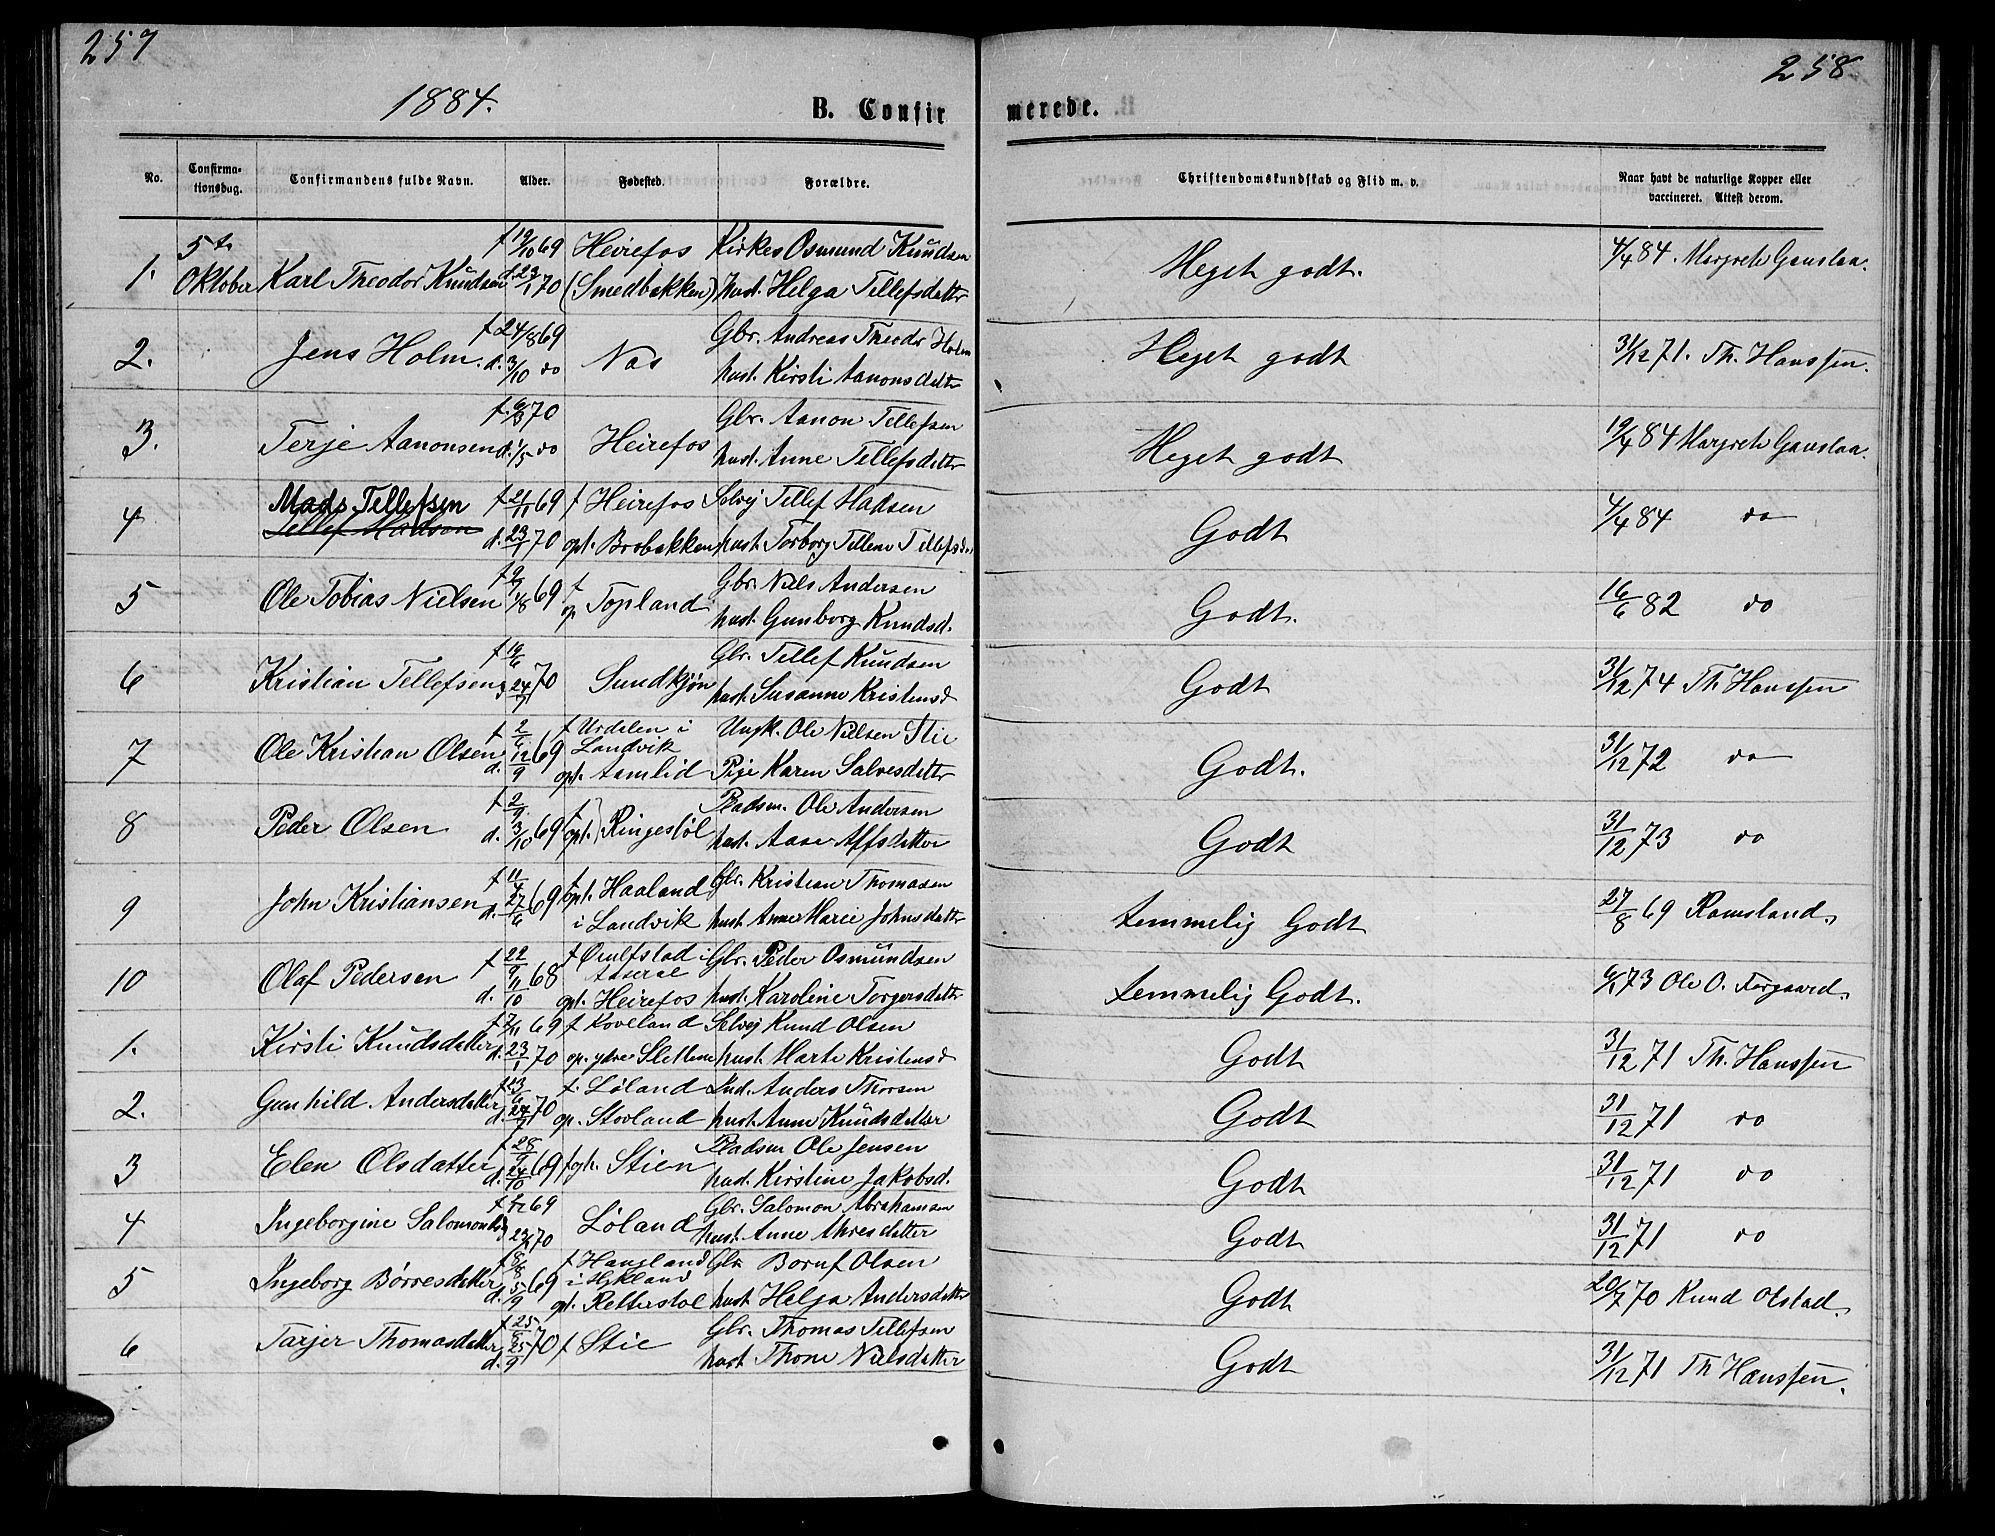 257
258
1884.
B. Confir
merede.
No.
Confirma-
tionsdag.
Confirmandens fulde Navn.
Alder.
Fødested.
Forældre.
Christendomskundskab og Flid m. v.
Naar havt de naturlige Kopper eller
vaccineret. Attest derom.
5te
Oktober
1. Karl Theodor Knudsen f 19/10 69 d. 23/1 70 Heirefos (Smedbakken) Kirkes Osmund Knudsen hust. Helga Tellefsdatter Meget godt. 4/4 84. Margrete Gauslaa.
2. Jens Holm. f 24/8 69 d. 3/10 do Nas Gbr. Andreas Theodr Holm hust. Kirsti Aanonsdatter Meget godt 31/12 71. Th. Hanssen.
3. Terje Aanonsen f. 6/3 70 d. 1/5 do Heirefos Gbr. Aanon Tellefsen hust. Anne Tellefsdatter Meget godt 19/4 84 Margrete Gauslaa.
4 Mads Tellefsen Tellef Madsen f 21/11 69 d. 23/1 70 f Heirefos opt. Brobakken Selvej Tellef Madsen hust. Torborg Tellene Tellefsd. Godt 4/4 84 do
5 Ole Tobias Nielsen 1/8 69 f op Topland Gbr. Niels Andersen hust. Gunborg Knudsd. Godt. 16/6 82 do
6 Kristian Tellefsen f 19/6 d 24/7 70 Sundkjøn Gbr. Tellef Knudsen hust. Susanne Kristensd Godt 31/12 74 Th Hanssen
7 Ole Kristian Olsen d. 12/9 69 f Urdalen i Landvik opt. Aamlid Ungk. Ole Nielsen Stie Pige Karen Salvesdatter Godt. 31/12 72 do
8 Peder Olsen f 2/9 d. 3/10 69 f opt. Ringestøl Pladsm. Ole Andersen hust. Aase Alfsdatter Godt 31/12 73 do
9 John Kristiansen f 11/4 d. 27/6 69 f opt. Haaland i Landvik Gbr. Kristian Thomasen hust. Anne Marie Johnsdatter temmelig Godt 27/8 69 Ramsland.
10 Olaf Pedersen f 22/9 d. 11/10 68 opt. Heirefos Gbr. Peder Osmundsen hust. Karoline Torgersdatter temmelig Godt. 6/1 73 Ole O.
1. Kirsti Knudsdatter f 7/11 69 d. 23/1 70 f Koveland op. ydre Slettene Selvej Knud Olsen hust. Marte Kristensd Godt 31/12 71 Th. Hanssen
2. Gunhild Andersdatter f 13/6 d. 24/7 70 f. Løland op. Stovland Ind. Anders Thorsen hust. Anne Knudsdatter Godt 31/12 71 do
3 Elen Olsdatter f 28/9 d. 24/10 69 f opt. Stien Pladsm Ole Jensen hust. Kirstine Jakobsd. Godt 31/12 71 do
4 Ingeborgine Salomonsd 69 23/1 70 Løland Gbr. Salomon Abrahamsen hust. Anne Aanesdatter Godt 31/12 71 do
5 Ingeborg Børresdatter f 8/8 d. 5/9 69 f Haugland i opt. Retterstøl Gbr Olsen hust Helga Andersdatter Godt 20/7 70 Knud Olstad.
6 Tarjer Thomasdatter f 25/8 d. 25/9 70 f Stie Gbr. Thomas Tellefsen hust Thone Nielsdatter Godt 31/12 71 Th Hanssen.